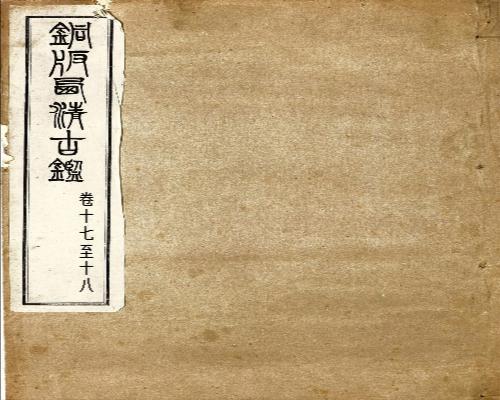 銅版西清古鑑
卷十七至十八